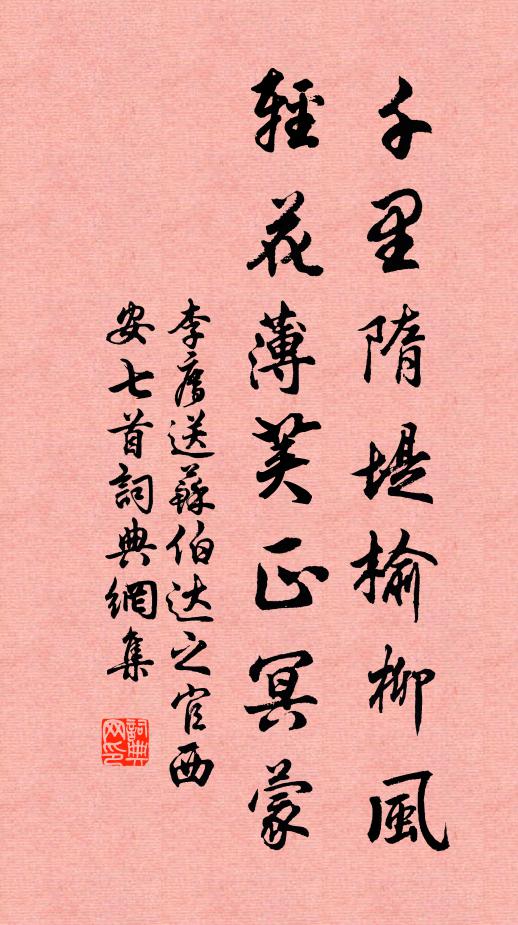 千里隋堤榆柳風
輕花薄荚正冥蒙
李廌送蘇伯达之官西
安七首詞典網集
詞典
网印